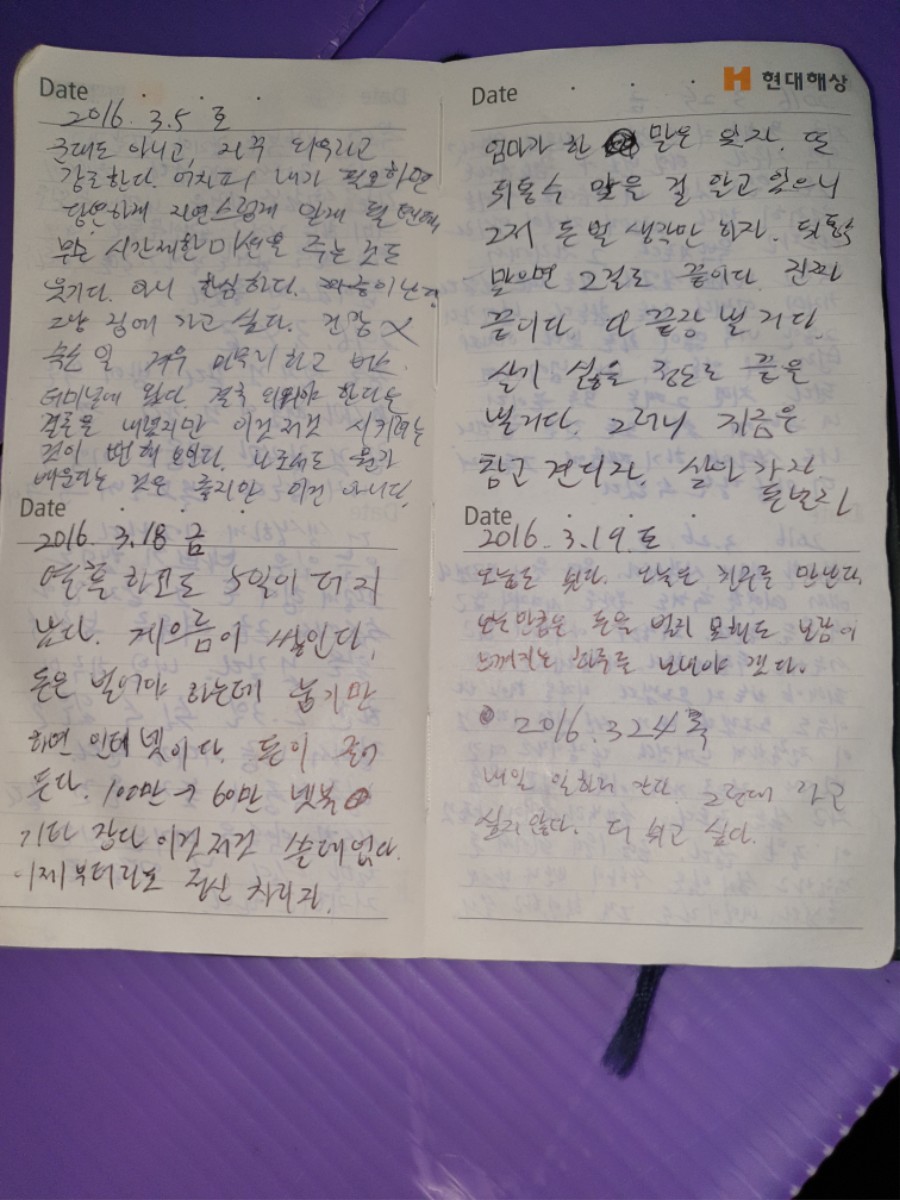 Date
2016. 3.5 토
군대도 아니고, 자꾸 외우라고
강조한다. 어차피 내가 필요하면
당연하게 자연스럽게 알게 될 텐데,
무슨 시간제한 미션을 주는 것도
웃기다. 아니 한심하다. 짜증이 난다
그냥 집에 가고 싶다.
일 겨우 마무리하고 버스
터미널에 왔다. 결국 외워야 한다는
결론을 내렸지만 이것저것 시키려는
것이 뻔히 보인다. 나로서도 뭔가
배운다는 것은 좋지만 이건 아니다
Date
2016. 3.18 금
열흘 하고도 5일이 더 지
났다. 게으름이 쌓인다.
돈은 벌어야 하는데 눕기만
하면 인터넷이다. 돈이 줄어
든다. 100만 → 60만 넷북
기타 잡다 이것저것 쓸데없다.
이제부터라도 정신 차리자.
Date
H 현대해상
엄마가 한 말은 잊자. 또
뒤통수 맞을 걸 알고 있으니
그저 돈 벌 생각만 하자. 뒤통수
맞으면 그걸로 끝이다. 진짜
끝이다 다 끝장 낼 거다
살기 싫을 정도로 끝을
낼거다. 그러니 지금은
참고 견디자. 살아가자
Date
2016. 3.19. 토
오늘은 친구를 만난다.
오늘만큼은 돈을 벌지 못해도 보람이
느껴지는 하루를 보내야 겠다.
2016. 3.24 목
내일 일하러 간다. 그런데 가고
싶지 않다. 더 쉬고 싶다.